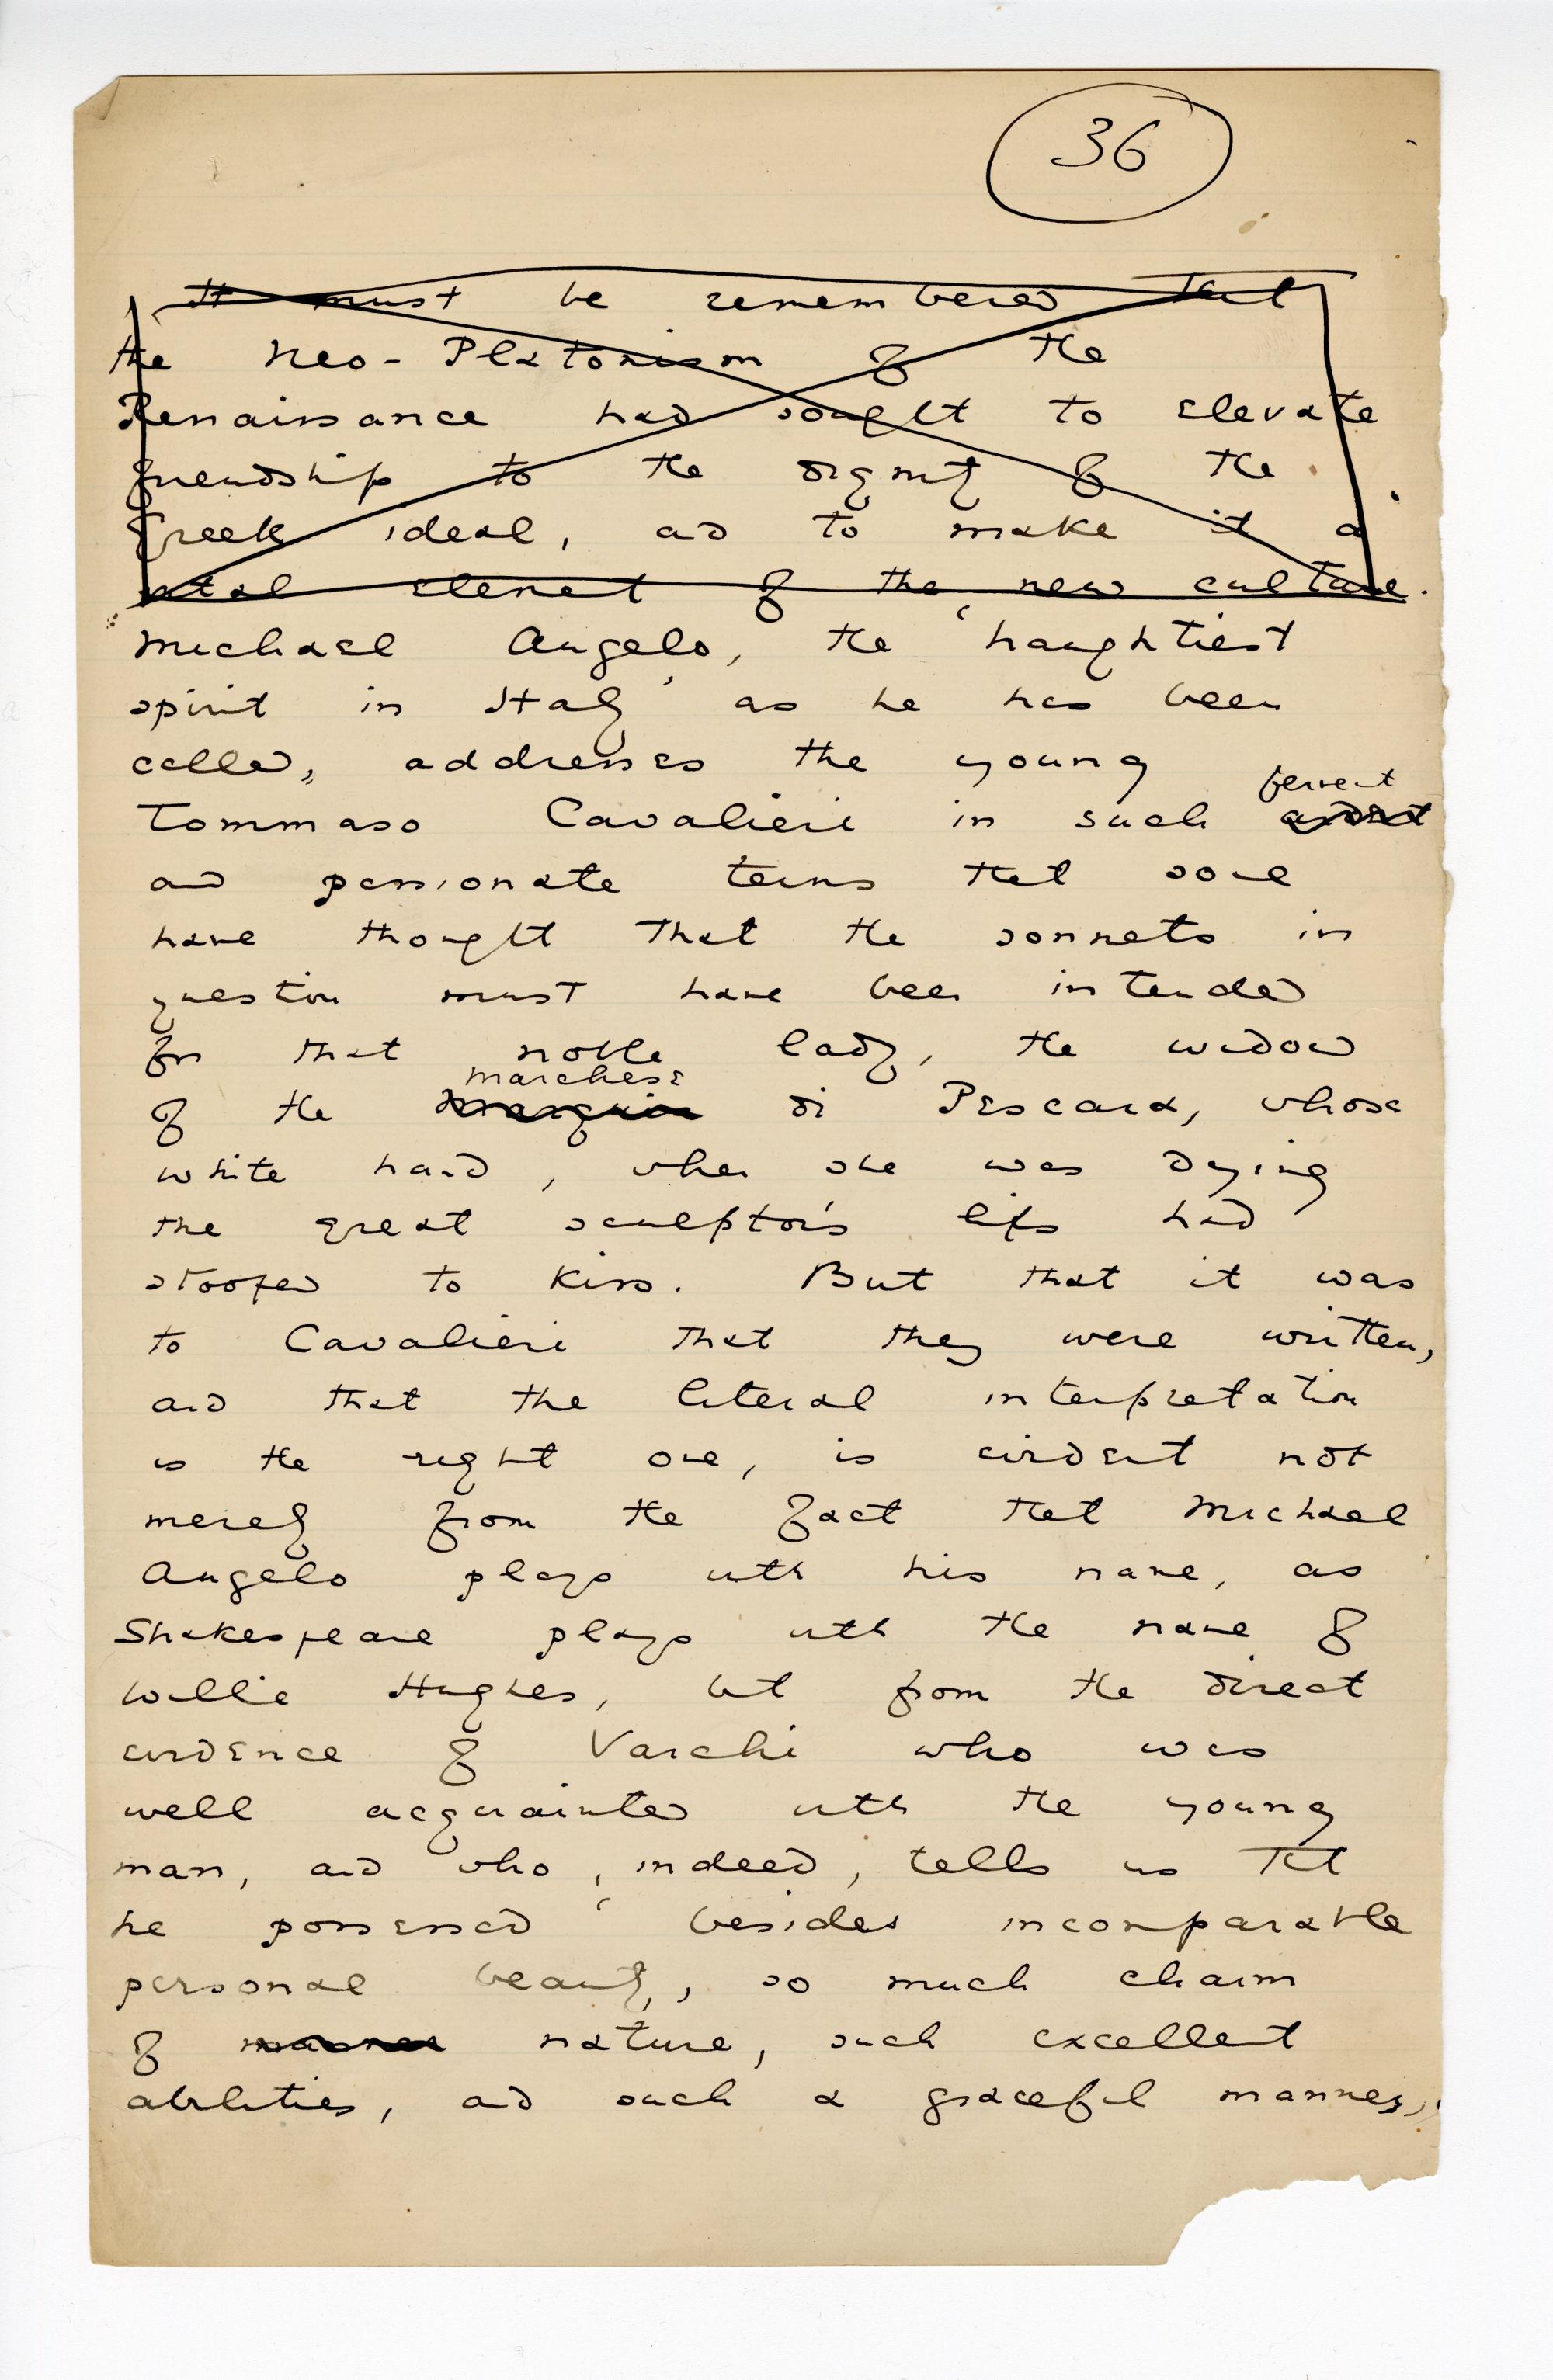 36
It must be remembered that
the Neo-Platonism of the
Renaissance had sought to elevate
friendship to the dignity of the
Greek ideal, and to make it a
vital element of the new culture.
Michael Angelo, the 'haughtiest
spirit in Italy' as he has been
called, addresses the young
fervent
Tommaso Cavalieri in such ardent
and passionate terms that some
have thought that the sonnets in
question must have been intended
for that noble lady, the widow
marchese
of the di Pescara, whose
white hand, when she was dying
the great sculptor's lips had
stooped to kiss. But that it was
to Cavalieri that they were written,
and that the literal interpretation
is the right one, is evident not
merely from the fact that Michael
Angelo plays with his name, as
Shakespeare plays with the name of
Willie Hughes, but from the direct
evidence of Varchi who was
well acquainted with the young
man, and who, indeed, tells us that
he possessed 'besides incomparable
personal beauty, so much charm
of manner nature, such excellent
abilities, and such a graceful manner,